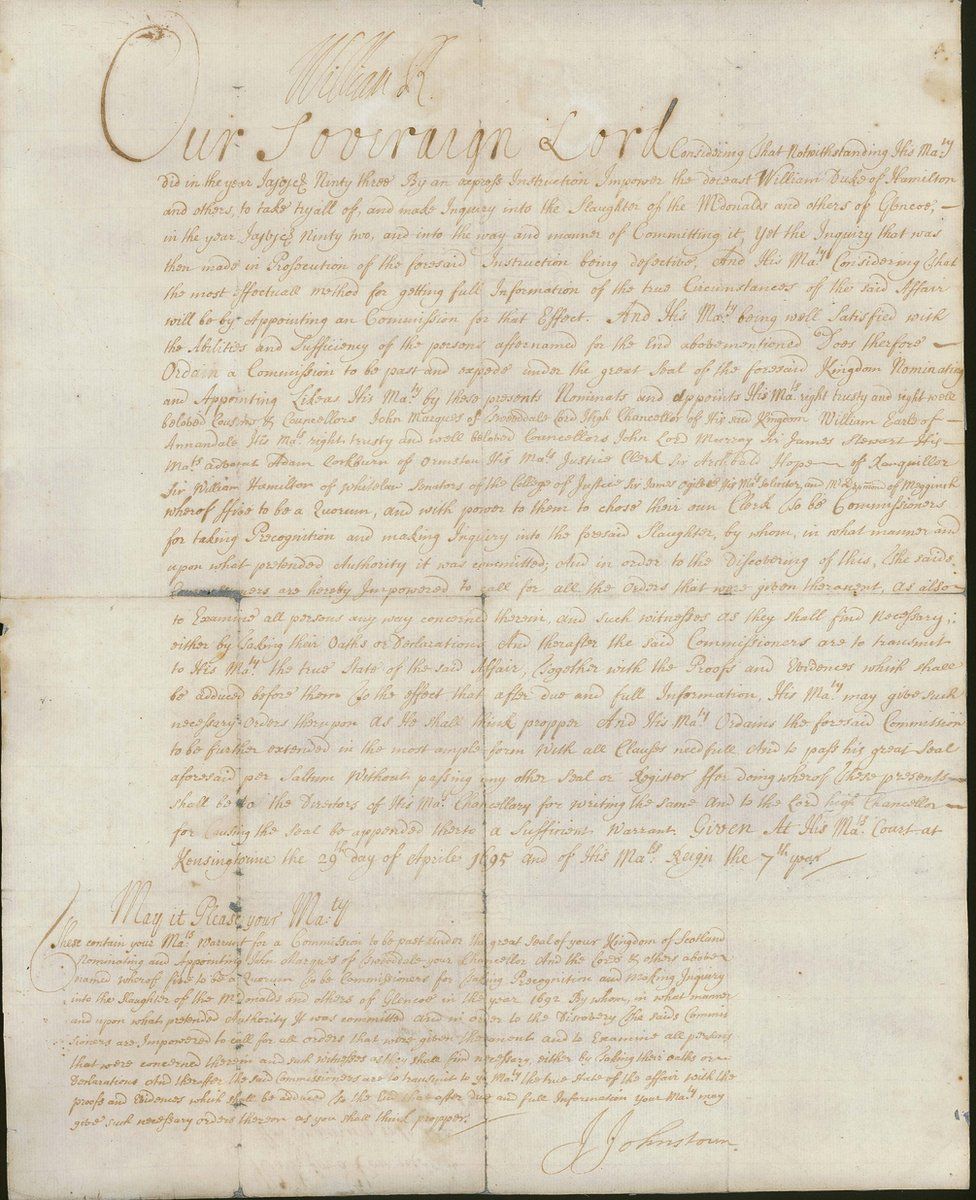 William R
Our Soveraign Lord Considering That Notwithstanding His Maty
Did in the year Jajvjc Ninty three By an express Instruction Impower the deceast William Duke of Hamilton
and others, to take tryall of, and make Inquiry into the Slaughter of the McDonalds and others of Glencoe,
in the year Jajvjc Ninty two, and into the way and manner of Committing it, Yet the Inquiry that was
then made in Prosecution of the foresaid Instruction being defective, And His Maty Considering That
the most effectuall method for getting full Information of the true Circumstances of the said Affair
will be by Appointing an Commission for that Effect. And His Maty being well Satisfied with
the Abilities and Sufficiency of the persons afternamed for the End abovementioned Does therfore
Ordain a Commission to be past and exped under the great Seal of the foresaid Kingdom Nominating
and Appointing Likeas His Maty by these presents Nominats and Appoints His Mats right trusty and right well
beloved Cousens & Councellors John Marques of Tweeddale Lord High Chancellor of His said Kingdom William Earle of
Annandale His Mats right trusty and well beloved Councellors John Lord Murray Sir James Stewart His
Mats advocat Adam Cockburn of Ormistoun His Mats Justice Clerk Sir Archbald Hope of Ranquiller
Sir William Hamilton of Whitelaw Senators of the College of Justice Sir James Ogilvie His Mats Solicitor, and Mr Drummond of Megginsh
wherof ffive to be a Quorum, and with power to them to chose their oun Clerk To be Commissioners
for taking Precognition and making Inquiry into the foresaid Slaughter, by whom, in what manner and
upon what pretended Authority it was committed; And in order to the Discovering of this, The saids
are hereby Impowered to call for all the Orders that were given theranent, As also
to Examine all persons any way concerned therein, and such witnesses as they shall find Necessary,
either by Taking their Oaths or Declarations. And therafter the said Commissioners are to transmit
to His Maty the true State of the said Affair, Together with the Proofs and Evidences which shall
be adduced before them To the effect that after due and full Information, His Maty may give such
necessary Orders therupon as He shall think propper And His Maty Ordains the foresaid Commission
to be further extended in the most ample form with all Clauses needfull And to pass his great Seal
aforesaid per Saltum Without passing any other Seal or Register ffor doing wherof These presents
shall be to the Directors of His Mats Chancellary for writing the same And to the Lord high Chancellor
for Causing the Seal be appended therto a Sufficient Warrant. Given At His Mats Court at
Kensingtoune the 29th day of Aprile 1695 and of His Mats Reign the 7th year
May it Please your Maty
These contain your Mats Warrant for a Commission to be past under the great Seal of your Kingdom of Scotland
Nominating and Appointing John Marques of Tweeddale your Chancellor And the Lords & others above
named wherof five to be a Quorum To be Commissioners for Taking Precognition and Making Inquiry
into the Slaughter of the McDonalds and others of Glencoe in the year 1692 By whom, in what manner
and upon what pretended Authority It was committed And in order to the Discovery The saids Commis
sioners are Impowered to call for all orders that were given theranent and to Examine all persons
that were concerned therein and such witnesses as they shall find necessary, either by Taking their oaths or
Declarations And therafter the said Commissioners are to transmit to yr Maty the true State of the affair with the
proofs and Evidences which shall be adduced To the End that after due and full Information your Maty may
give such necessary orders thereon as you shall think propper.
J Johnstoun